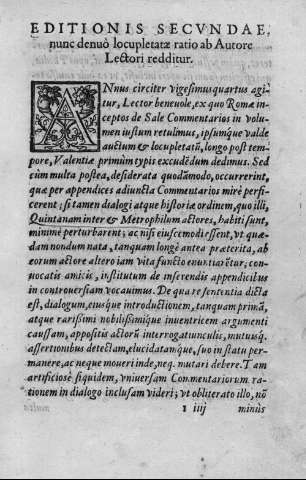 EDITIONIS SECVNDAE,
nunc denuò locupletatæ ratio ab Autore
Lectori redditur.
ANnus circiter vigesimusquartus agi
tur, Lector beneuole, ex quo Romæ in-
ceptos de Sale Commentarios in volu-
men iustum retulimus, ipsumque valde
auctum & locupletatũ, longo post tem-
pore, Valentiæ primùm typis excudẽdum dedimus. Sed
cùm multa postea, desiderata quodãmodo, occurrerint,
quæ per appendices adiuncta Commentarios mirè perfi-
cerent; si tamen dialogi atque historiæ ordinem, quo illi,
Quintanam inter & Metrophilum actores, habiti sunt,
minimè perturbarent; ac nisi eiuscemodi essent, vt quæ-
dam nondum nata, tanquam longè antea præterita, ab
eorum actore altero iam vita functo enuntiarẽtur; con-
uocatis amicis, institutum de inserendis appendicibus
in controuersiam vocauimus. De qua re sententia dicta
est, dialogum, eiusque introductionem, tanquam primã,
atque rarissimi nobilissimique inuentricem argumenti
caussam, appositis actorũ interrogatiunculis, mutuisq́.
assertionibus detectam, elucidatamque, suo in statu per-
manere, ac neque moueri inde, neq. mutari debere. Tam
artificiosè siquidem, vniuersam Commentariorum ra-
tionem in dialogo inclusam videri; vt obliterato illo, nõ
1 iiij minùs